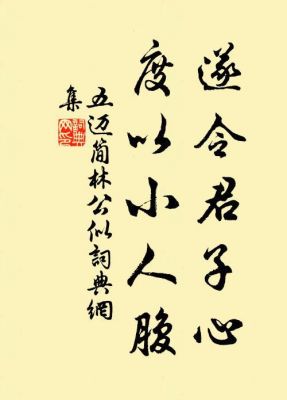 遂令君子心
度以小人腹
五迈简林公似词典網
集